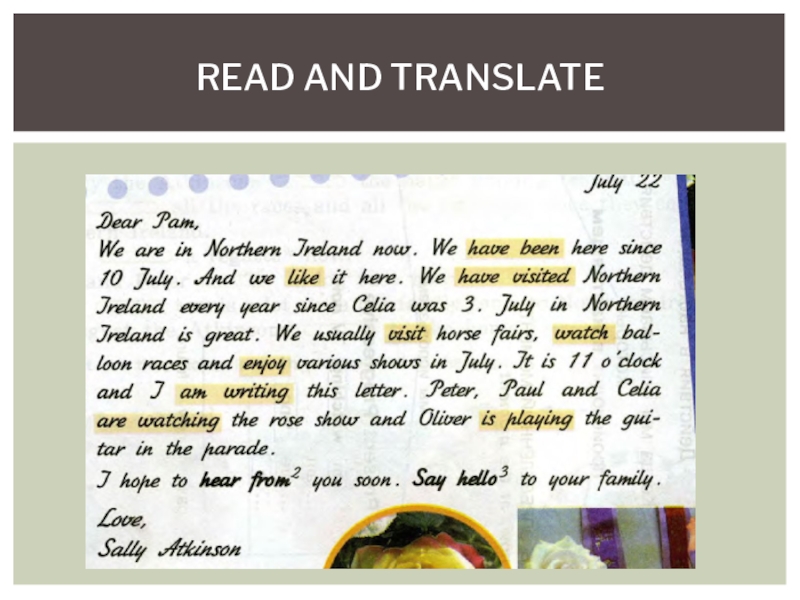 READ AND TRANSLATE
July 22
Dear Pam,
We are in Northern Ireland now. We have been here since
10 July. And we like it here. We have visited Northern
Ireland every year since Celia was 3. July in Northern
Ireland is great. We usually visit horse fairs, watch bal-
loon races and enjoy various shows in July. It is 11 o'clock
and I am writing this letter. Peter, Paul and Celia
are watching the rose show and Oliver is playing the gui-
tar in the parade.
I hope to hear from² you soon. Say hello³ to your family.
Love,
Sally Atkinson